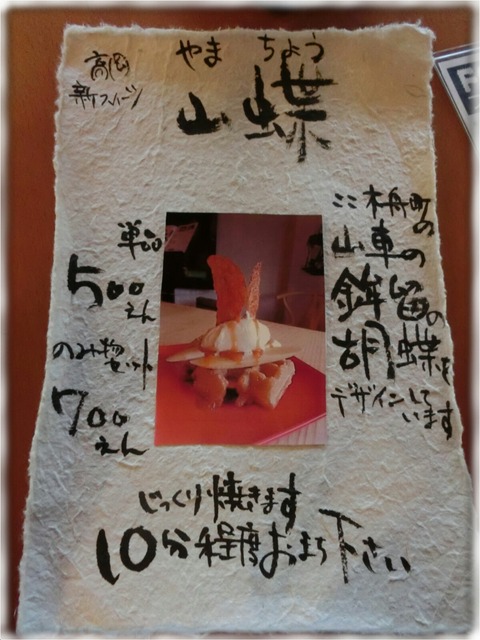 高岡
新スイーツ
やま ちょう
山蝶
ここ木舟町の
山車の
鉾留の
胡蝶を
デザインして
います
単品
500えん
のみ物セット
700えん
じっくり焼きます
10分程度おまち下さい